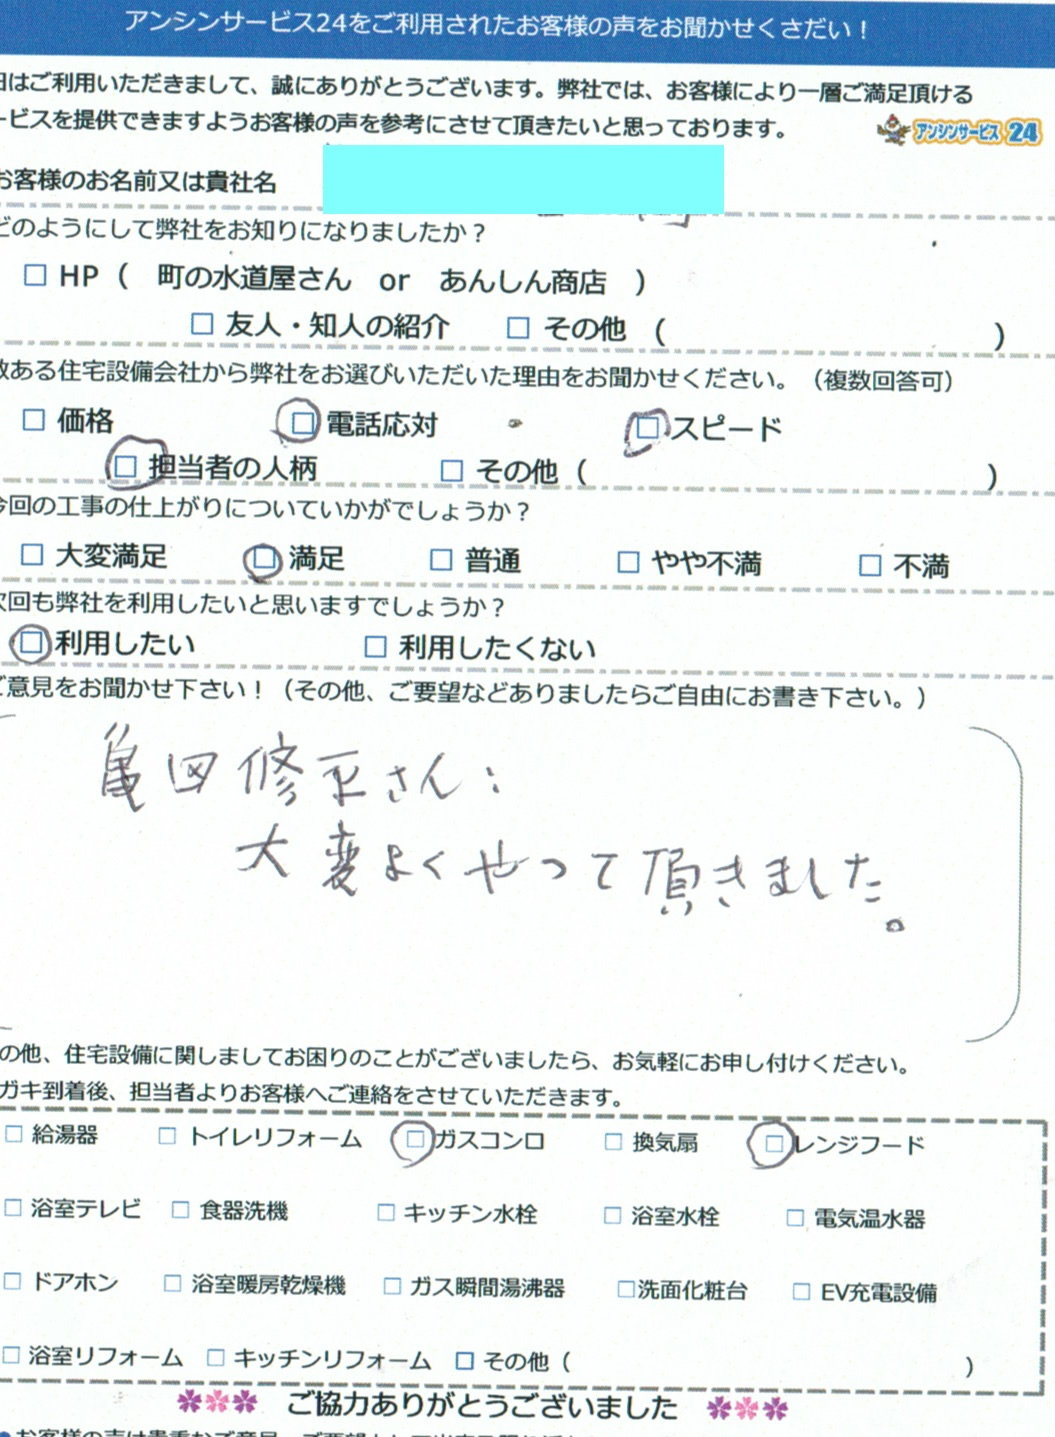 アンシンサービス24をご利用されたお客様の声をお聞かせくさだい！
日はご利用いただきまして、誠にありがとうございます。弊社では、お客様により一層ご満足頂ける
ービスを提供できますようお客様の声を参考にさせて頂きたいと思っております。
アンシンサービス 24
お客様のお名前又は貴社名
どのようにして弊社をお知りになりましたか？
□ HP（ 町の水道屋さん or あんしん商店 ）
□ 友人・知人の紹介 □ その他 （ ）
数ある住宅設備会社から弊社をお選びいただいた理由をお聞かせください。（複数回答可）
□ 価格 □ 電話応対 □ スピード
□ 担当者の人柄 □ その他（ ）
今回の工事の仕上がりについていかがでしょうか？
□ 大変満足 □ 満足 □ 普通 □ やや不満 □ 不満
次回も弊社を利用したいと思いますでしょうか？
□ 利用したい □ 利用したくない
ご意見をお聞かせ下さい！（その他、ご要望などありましたらご自由にお書き下さい。）
亀田修平さん：
大変よくやって頂きました。
の他、住宅設備に関しましてお困りのことがございましたら、お気軽にお申し付けください。
ガキ到着後、担当者よりお客様へご連絡をさせていただきます。
□ 給湯器 □ トイレリフォーム □ ガスコンロ □ 換気扇 □ レンジフード
□ 浴室テレビ □ 食器洗機 □ キッチン水栓 □ 浴室水栓 □ 電気温水器
□ ドアホン □ 浴室暖房乾燥機 □ ガス瞬間湯沸器 □ 洗面化粧台 □ EV充電設備
□ 浴室リフォーム □ キッチンリフォーム □ その他（ ）
ご協力ありがとうございました